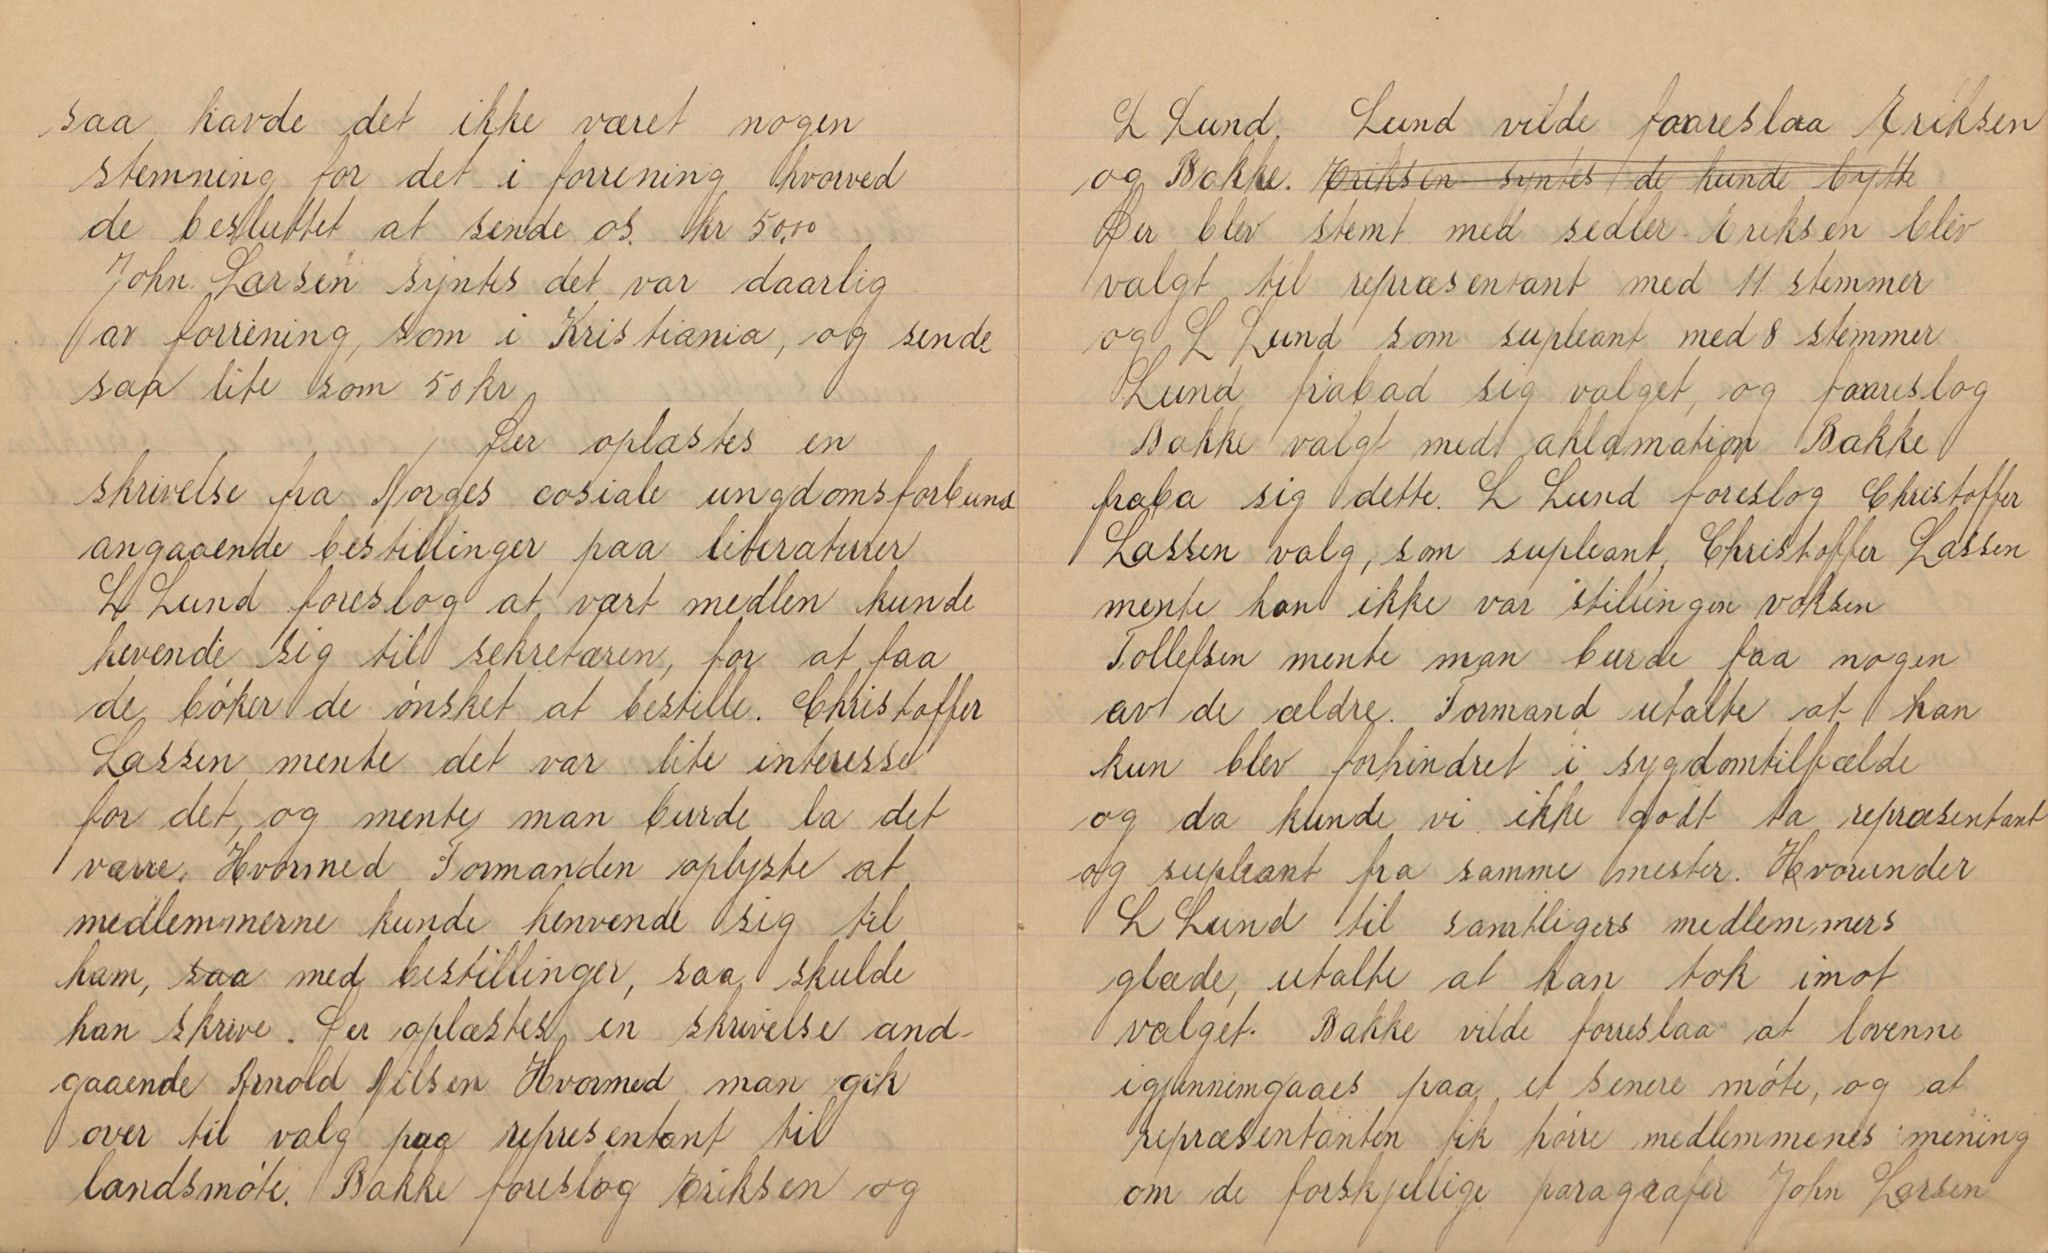 saa havde det ikke været nogen
stemning for det i forrening hvorved
de besluttet at sende os. kr 50,00
John. Larsen syntes det var daarlig
av forrening, som i Kristiania, og sende
saa lite som 50 kr
Der oplæstes en
skrivelse fra Norges cosiale ungdomsforbund
angaaende bestillinger paa literaturer
L Lund foreslog at vært medlen kunde
hevende sig til sekretæren, for at faa
de bóker de ónsket at bestille. Christoffer
Lassen mente det var lite interesse
for det, og mente man burde la det
værre. Hvormed Formanden oplyste at
medlemmerne kunde henvende sig til
ham, saa med bestillinger, saa skulde
han skrive. Der oplæstes en skrivelse and-
gaaende Arnold Nilsen Hvormed man gik
over til valg paa representant til
landsmóte. Bakke foreslog Eriksen og
L Lund. Lund vilde faareslaa Eriksen
og Bakke. Eriksen syntes de kunde bytte
Der blev stemt med sedler. Eriksen blev
valgt til repræsentant med 11 stemmer
og L Lund som supleant med 8 stemmer
Lund frabad sig valget, og faareslog
Bakke valgt med aklamation Bakke
fraba sig dette. L Lund foreslog Christoffer
Lassen valg, som supleant, Christoffer Lassen
mente han ikke var stillingen voksen
Tollefsen mente man burde faa nogen
av de ældre. Formand utalte at han
kun blev forhindret i sygdomtilfælde
og da kunde vi ikke godt ta repræsentant
og supleant fra samme mester. Hvorunder
L Lund til samtligers medlemmers
glæde, utalte at han tok imot
valget. Bakke vilde forreslaa at lovenne
igjunnemgaaes paa et senere móte, og at
repræsentanten fik hórre medlemmenes mening
om de forskjellige paragrafer John Larsen